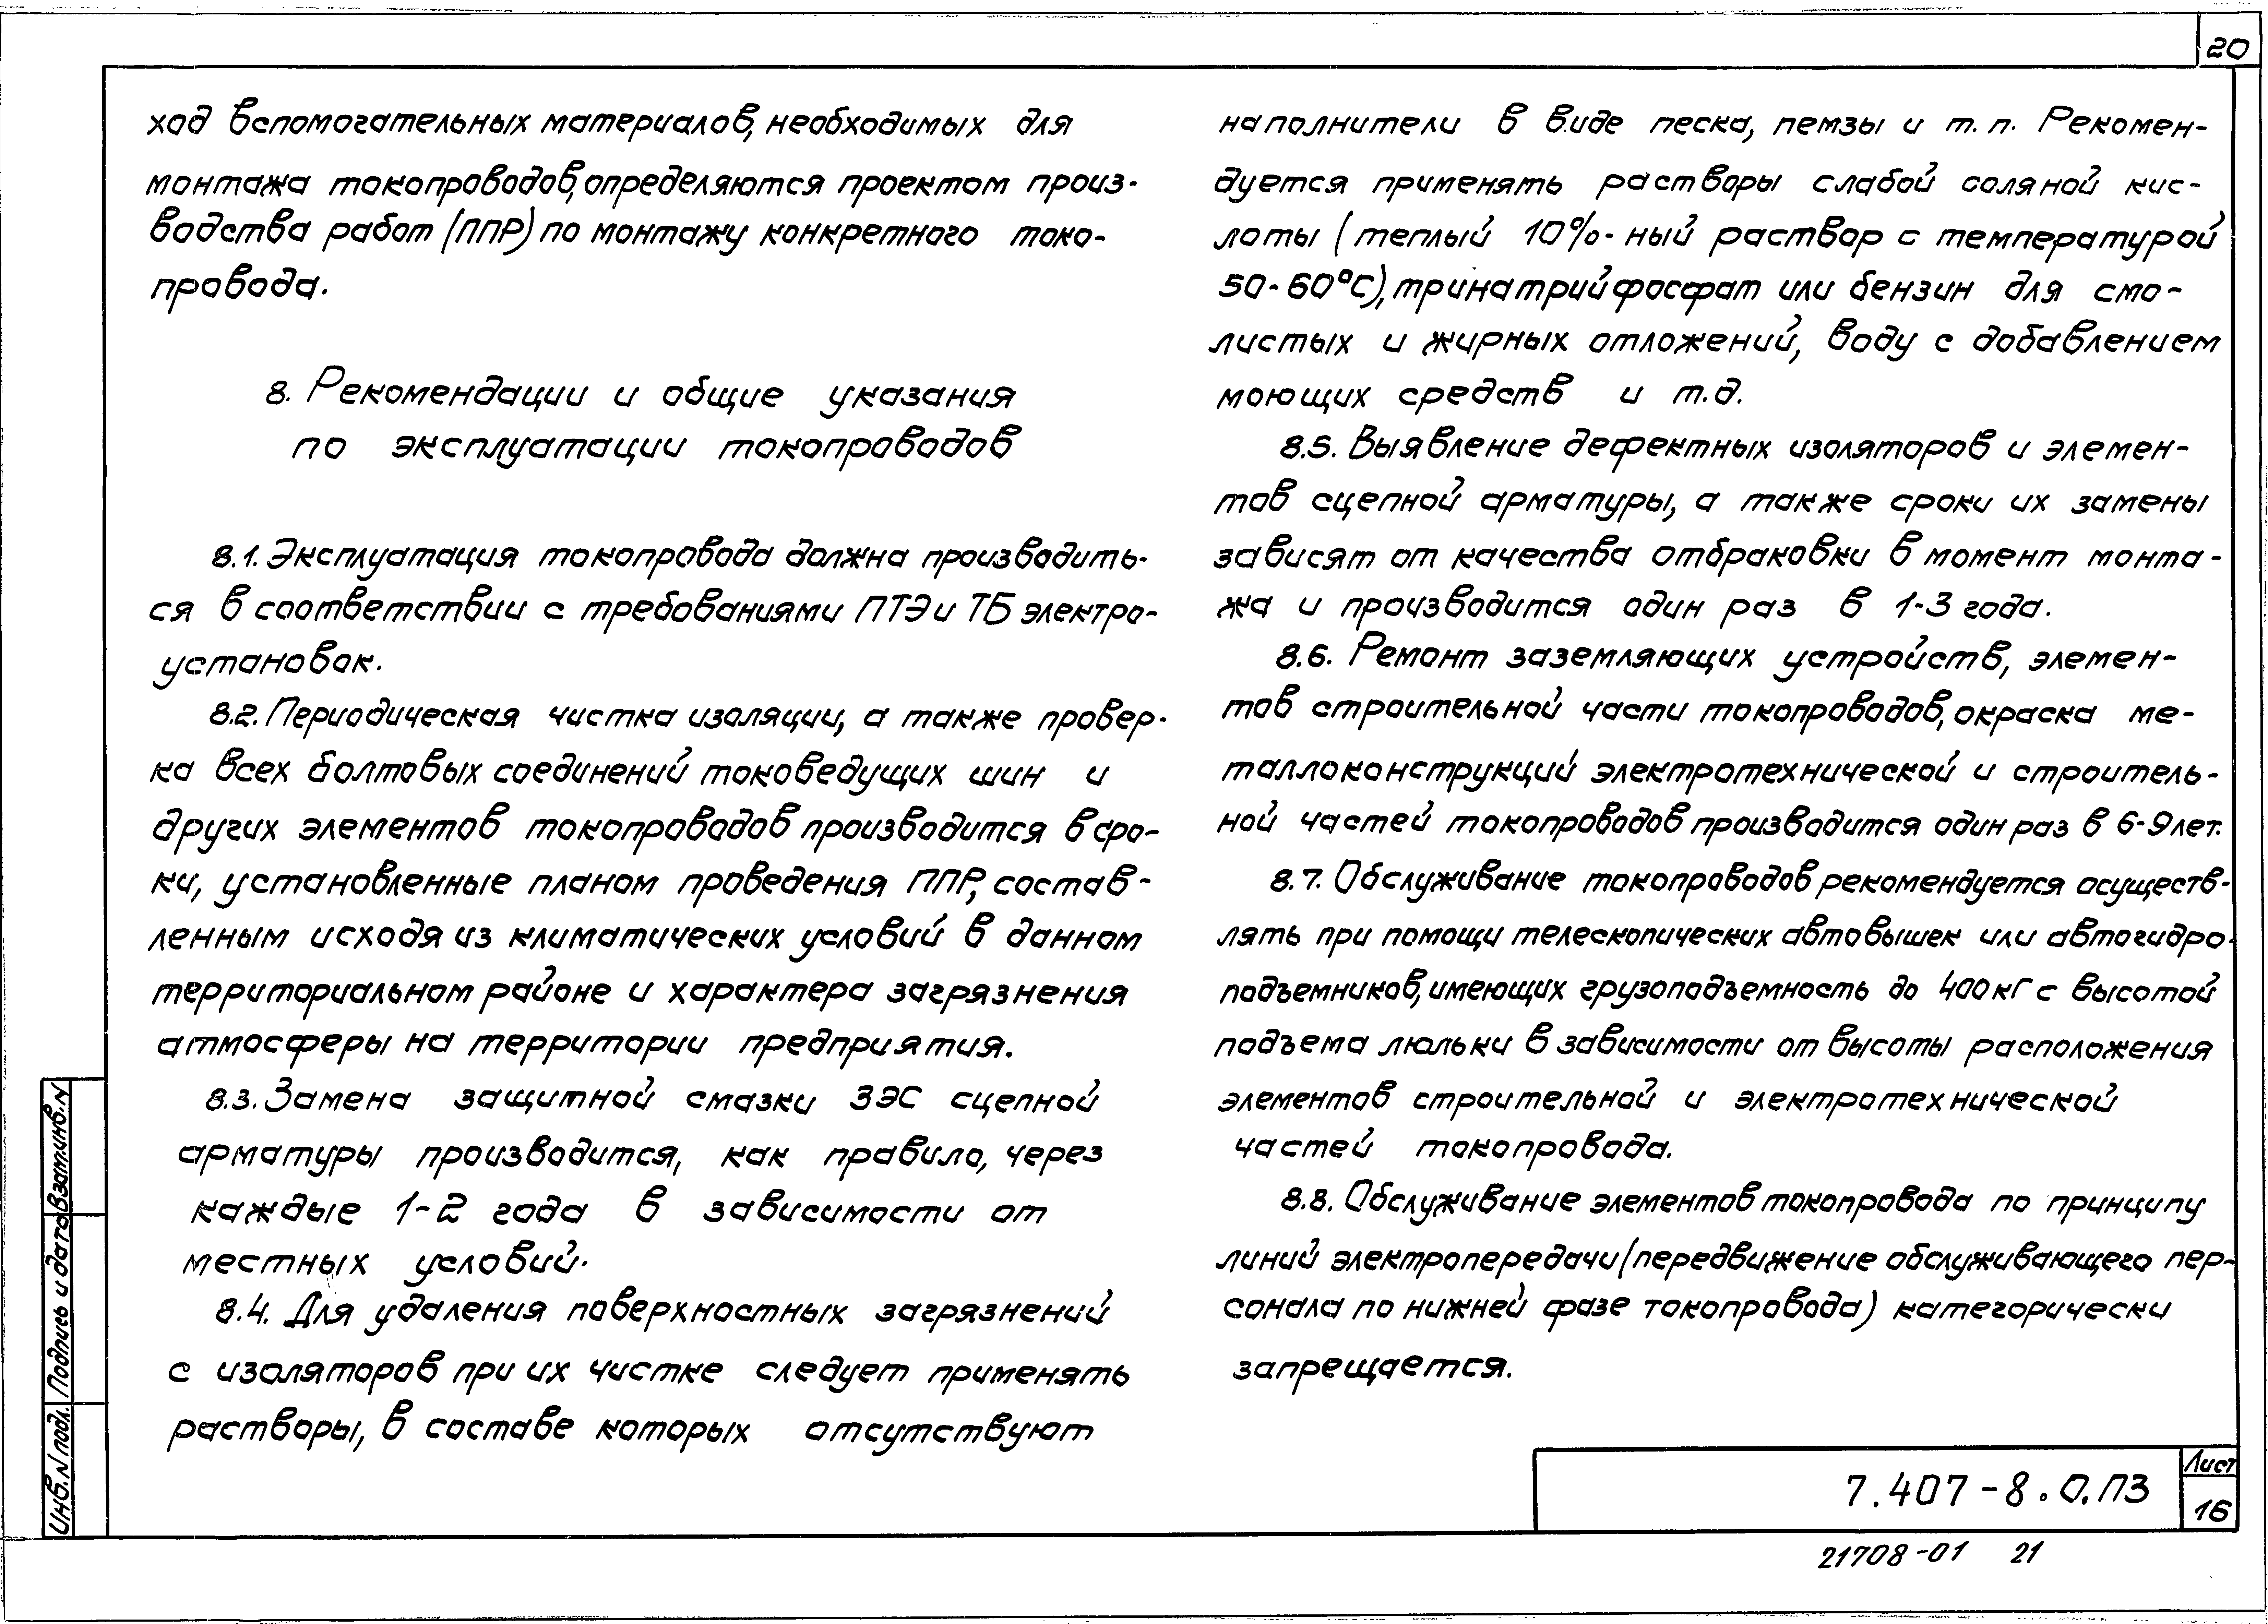 20
ход вспомогательных материалов, необходимых для
монтажа токопроводов, определяются проектом произ-
водства работ (ППР) по монтажу конкретного токо-
провода.
8. Рекомендации и общие указания
по эксплуатации токопроводов
8.1. Эксплуатация токопровода должна производить-
ся в соответствии с требованиями ПТЭ и ТБ электро-
установок.
8.2. Периодическая чистка изоляции, а также провер-
ка всех болтовых соединений токоведущих шин и
других элементов токопроводов производится в сро-
ки, установленные планом проведения ППР, состав-
ленным исходя из климатических условий в данном
территориальном районе и характера загрязнения
атмосферы на территории предприятия.
8.3. Замена защитной смазки ЗЭС сцепной
арматуры производится, как правило, через
каждые 1-2 года в зависимости от
местных условий.
8.4. Для удаления поверхностных загрязнений
с изоляторов при их чистке следует применять
растворы, в составе которых отсутствуют
наполнители в виде песка, пемзы и т.п. Рекомен-
дуется применять растворы слабой соляной кис-
лоты (теплый 10%-ный раствор с температурой
50-60°С), тринатрийфосфат или бензин для смо-
листых и жирных отложений, воду с добавлением
моющих средств и т.д.
8.5. Выявление дефектных изоляторов и элемен-
тов сцепной арматуры, а также сроки их замены
зависят от качества отбраковки в момент монта-
жа и производится один раз в 1-3 года.
8.6. Ремонт заземляющих устройств, элемен-
тов строительной части токопроводов, окраска ме-
таллоконструкций электротехнической и строитель-
ной частей токопроводов производится один раз в 6-9 лет.
8.7. Обслуживание токопроводов рекомендуется осуществ-
лять при помощи телескопических автовышек или автогидро-
подъемников, имеющих грузоподъемность до 400 кг с высотой
подъема люльки в зависимости от высоты расположения
элементов строительной и электротехнической
частей токопровода.
8.8. Обслуживание элементов токопровода по принципу
линий электропередачи (передвижение обслуживающего пер-
сонала по нижней фазе токопровода) категорически
запрещается.
Инв. N подл. Подпись и дата Взам. инв. N
7.407-8.0.ПЗ
Лист
16
21708-01 21